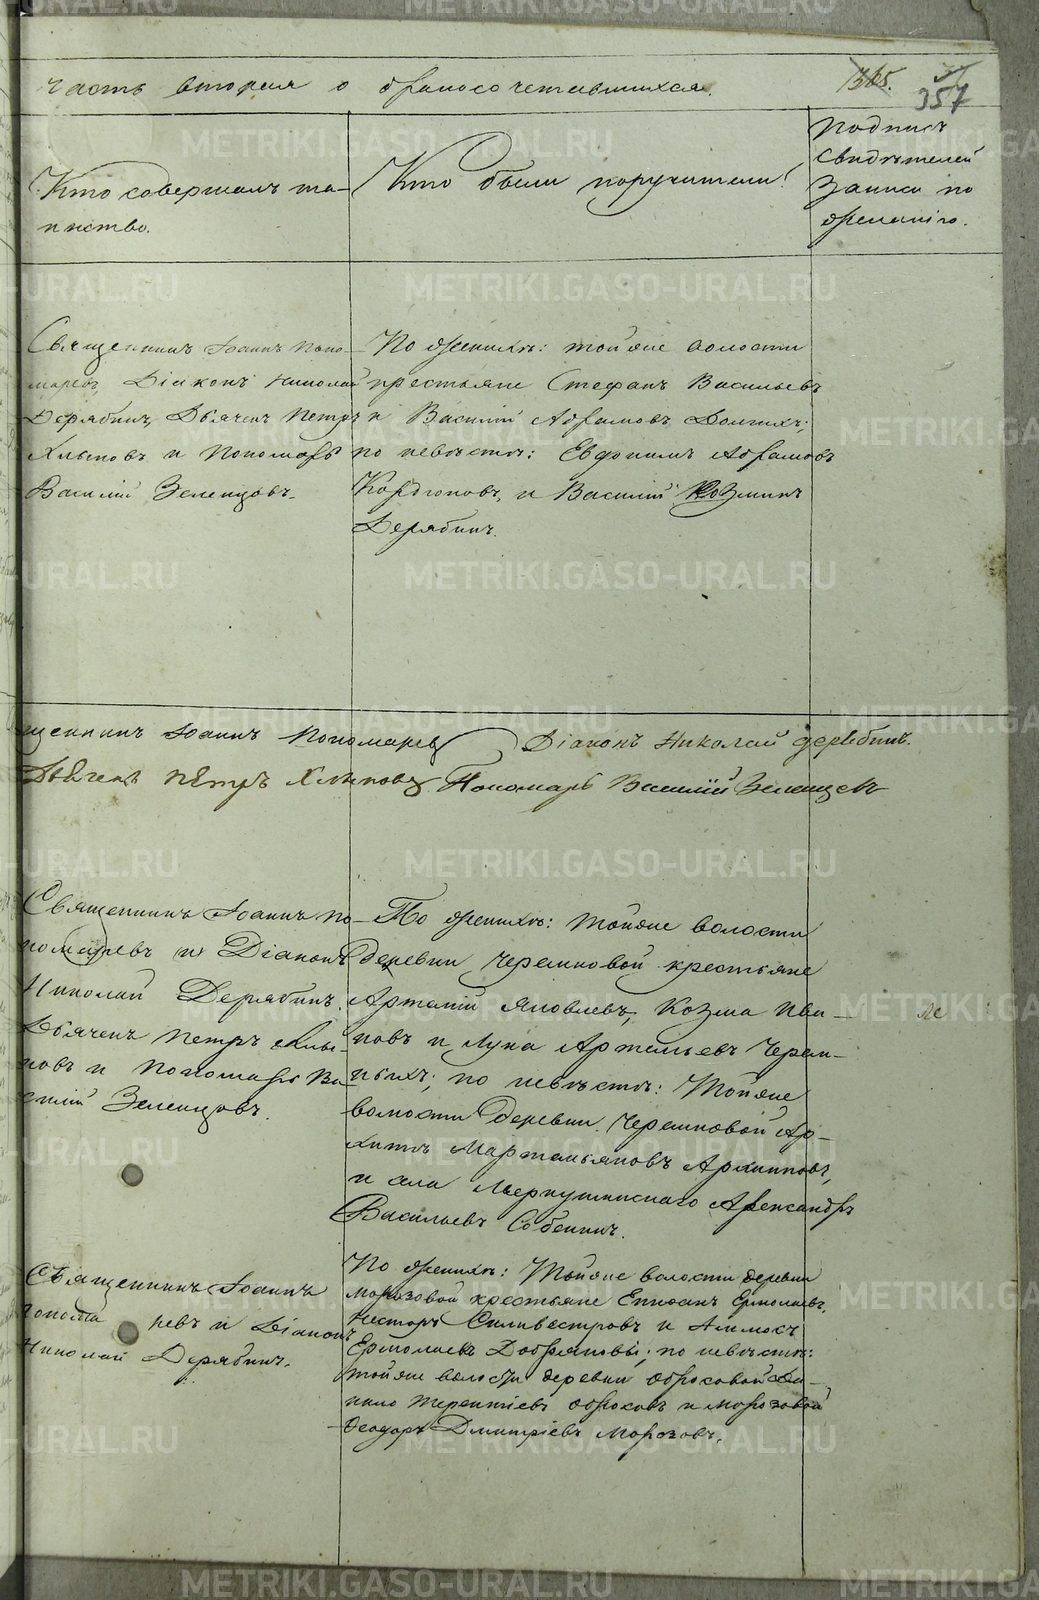 часть вторая о бракосочетавшихся.
365.
357
Кто совершалъ та-
инство.
Кто были поручители.
Подпись
свидѣтелей
записи по
желанію.
Священникъ Іоаннъ Поно-
маревъ Діаконъ Николай
Дерябинъ, Дьячекъ Петръ
Хлыновъ и Пономарь
Василій Зеленцовъ.
По женихѣ: тойже волости
крестьяне Стефанъ Васильевъ
и Василій Абрамовъ Долгихъ;
по невѣстѣ: Евдокимъ Абрамовъ
Кордюковъ, и Василій Козминъ
Дерябинъ.
щенникъ Іоаннъ Пономаревъ Діаконъ Николай Дерябинъ.
Дьячекъ Петръ Хлыновъ Пономарь Василій Зеленцовъ
Священникъ Іоаннъ По-
номаревъ и Діаконъ
Николай Дерябинъ.
Дьячекъ Петръ Хлы-
новъ и Пономарь Ва-
силій Зеленцовъ.
По женихѣ: тойже волости
деревни Черемновой крестьяне
Артемій Яковлевъ, Козма Ива-
новъ и Лука Артемьевъ Черем-
ныхъ; по невѣстѣ: Тойже
волости деревни Черемновой Ар-
хипъ Мартемьяновъ Архиповъ,
и села Меркушинскаго Александръ
Васильевъ Собенинъ.
Священникъ Іоаннъ
Понома ревъ и Діаконъ
Николай Дерябинъ.
По женихѣ: Тойже волости деревни
Морозовой крестьяне Епифанъ Ермолаевъ,
Несторъ Силивестровъ и
Ермолаевъ; по невѣстѣ:
тойже волости деревни Обросовой Да-
нило Терентіевъ Обросовъ и Морозовой
Ѳеодоръ Дмитріевъ Морозовъ.
METRIKI.GASO-URAL.RU